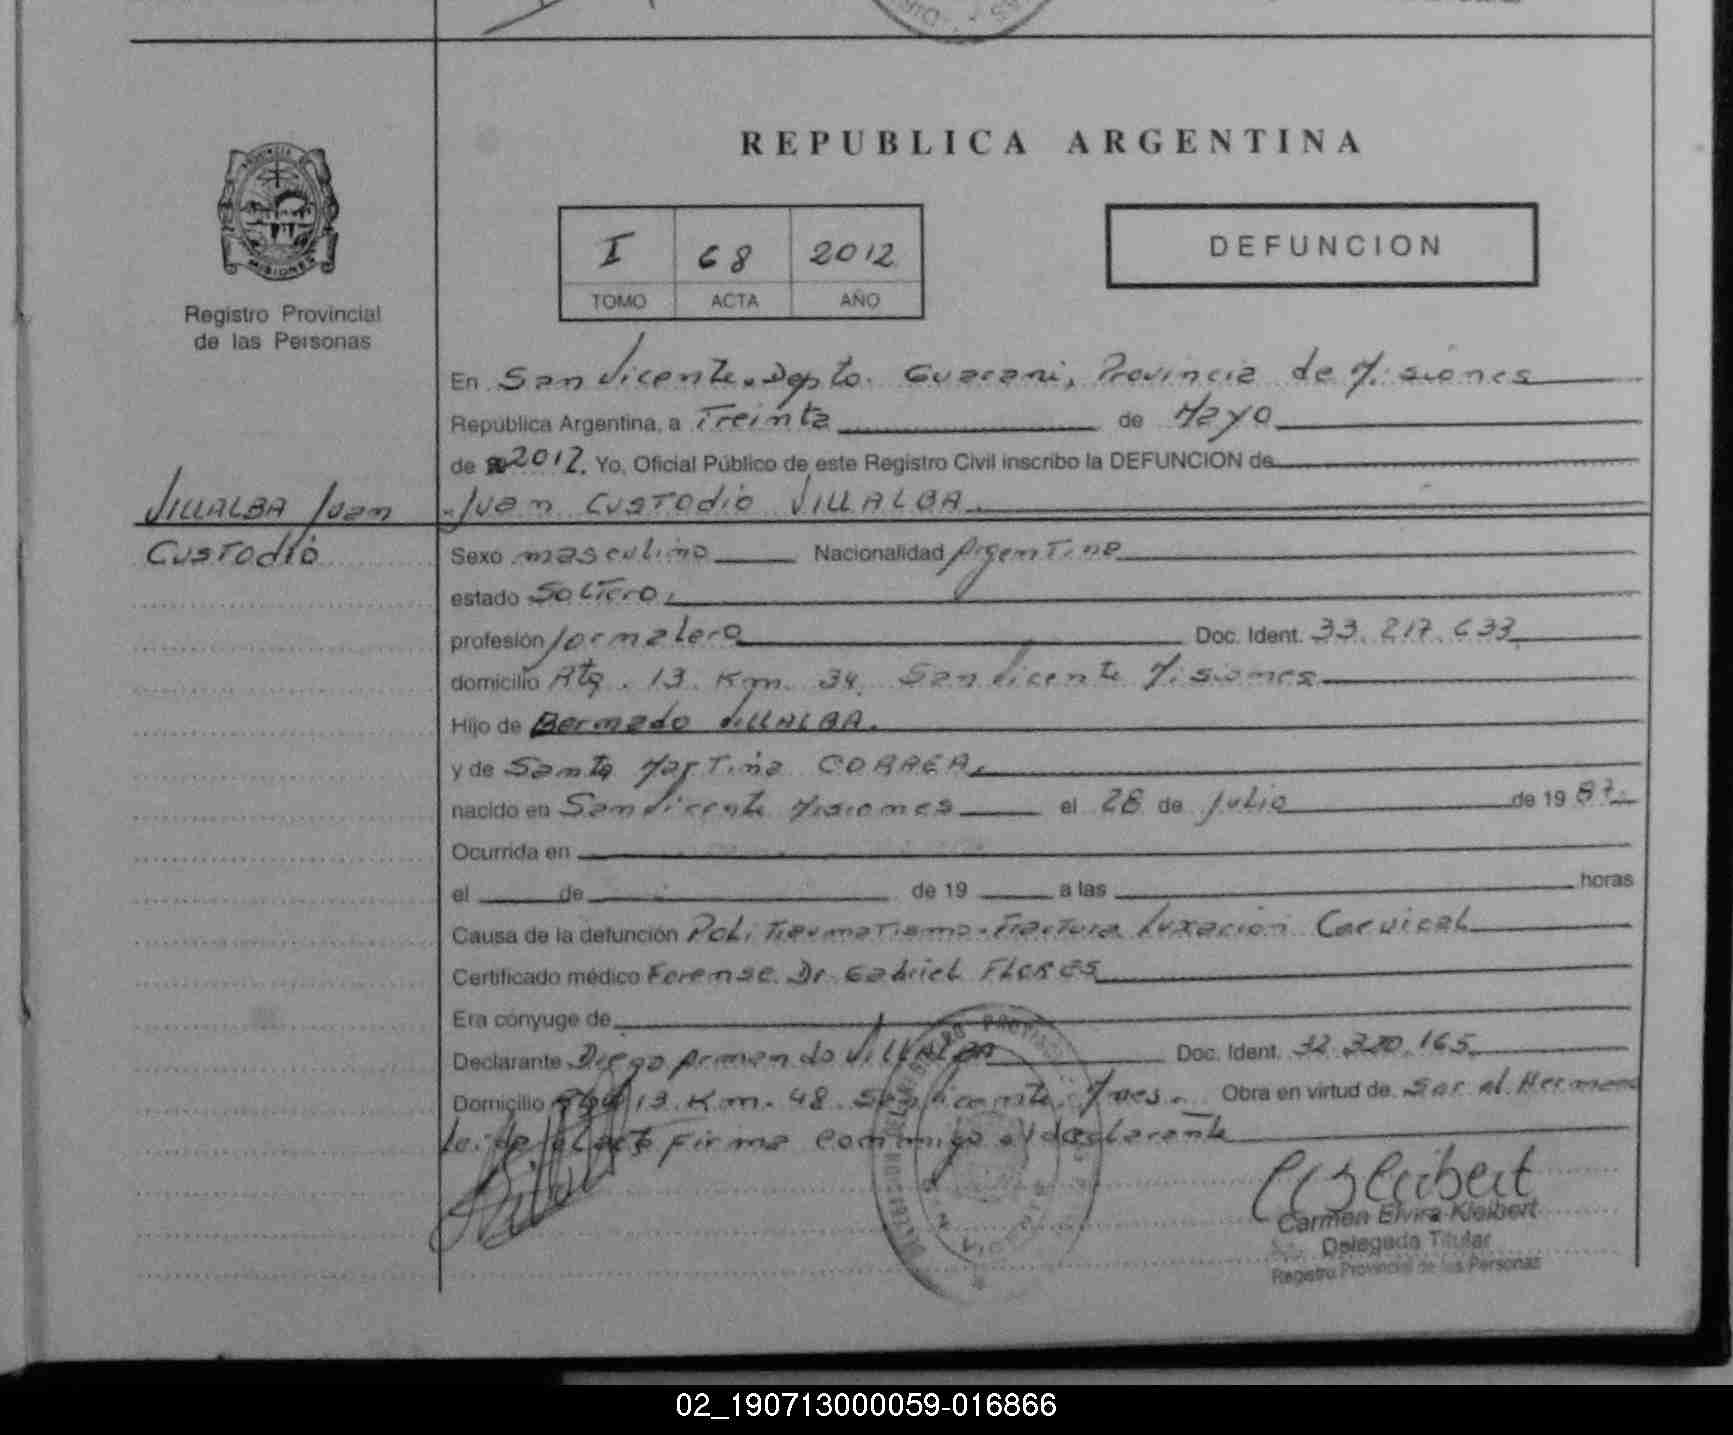 REPUBLICA ARGENTINA
PROVINCIA DE
MISIONES
Registro Provincial
de las Personas
I 68 2012
TOMO ACTA AÑO
DEFUNCION
En San Vicente. Depto. Guarani, Provincia de Misiones
República Argentina, a Treinta de Mayo
de 2012. Yo, Oficial Público de este Registro Civil inscribo la DEFUNCION de
VILLALBA Juan
CUSTODIO
Juan CUSTODIO VILLALBA.
Sexo masculino Nacionalidad Argentina
estado Soltero.
profesión Jornalero Doc. Ident. 33.217.633
domicilio Rta. 13 Km. 34. San Vicente Misiones
Hijo de Bernado VILLALBA.
y de Santa Martina CORREA.
nacido en San Vicente Misiones el 28 de Julio de 19 87.
Ocurrida en
el de de 19 a las horas
Causa de la defunción Politraumatismo-Fractura luxacion Cervical
Certificado médico Forense. Dr. Gabriel FLORES
Era cónyuge de
Declarante Diego Armando VILLALBA Doc. Ident. 32.320.165
Domicilio 13 Km. 48 San Vicente. Mnes. Obra en virtud de Ser el Hermano
Leida el acta Firma conmigo el declarante
Carmen Elvira Kleibert
Delegada Titular
Registro Provincial de las Personas
02_190713000059-016866